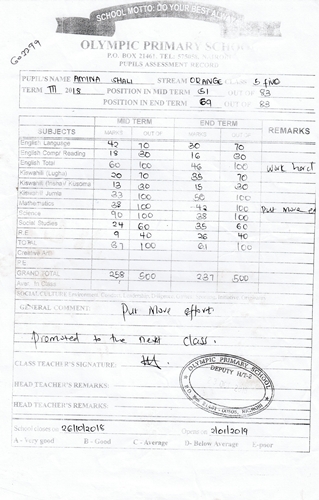 SCHOOL MOTTO: DO YOUR BEST
OLYMPIC PRIMARY SCHOOL
PUPILS ASSESSMENT RECORD
PUPIL'S NAME AMINA SHALI STREAM ORANGE CLASS 5
TERM III 2018 POSITION IN MID TERM 51 OUT OF 83
POSITION IN END TERM 69 OUT OF 83
MID TERM END TERM
SUBJECTS MARKS OUT OF MARKS OUT OF REMARKS
English Language 42 70 30 70
English Compl Reading 18 30 16 30
English Total 60 100 46 100 Work hard
Kiswahili (Lugha) 20 70 35 70
Kiswahili 13 30 15 30
Kiswahili Jumla 33 100 50 100
Mathematics 38 42 100 Put More
Science 90 100 38 100
Social Studies 24 60 35 60
R.E 9 40 26 40
TOTAL 37 100 61 100
Creative Arts
P.E
GRAND TOTAL 258 500 237 500
GENERAL COMMENT: Put More effort
Promoted to the next class.
CLASS TEACHER'S SIGNATURE:
OLYMPIC PRIMARY SCHOOL
DEPUTY H/T-2
HEAD TEACHER'S REMARKS:
HEAD TEACHER'S REMARKS:
26/10/2018 2/01/2019
A - Very good B - Good C - Average D- Below Average E-poor